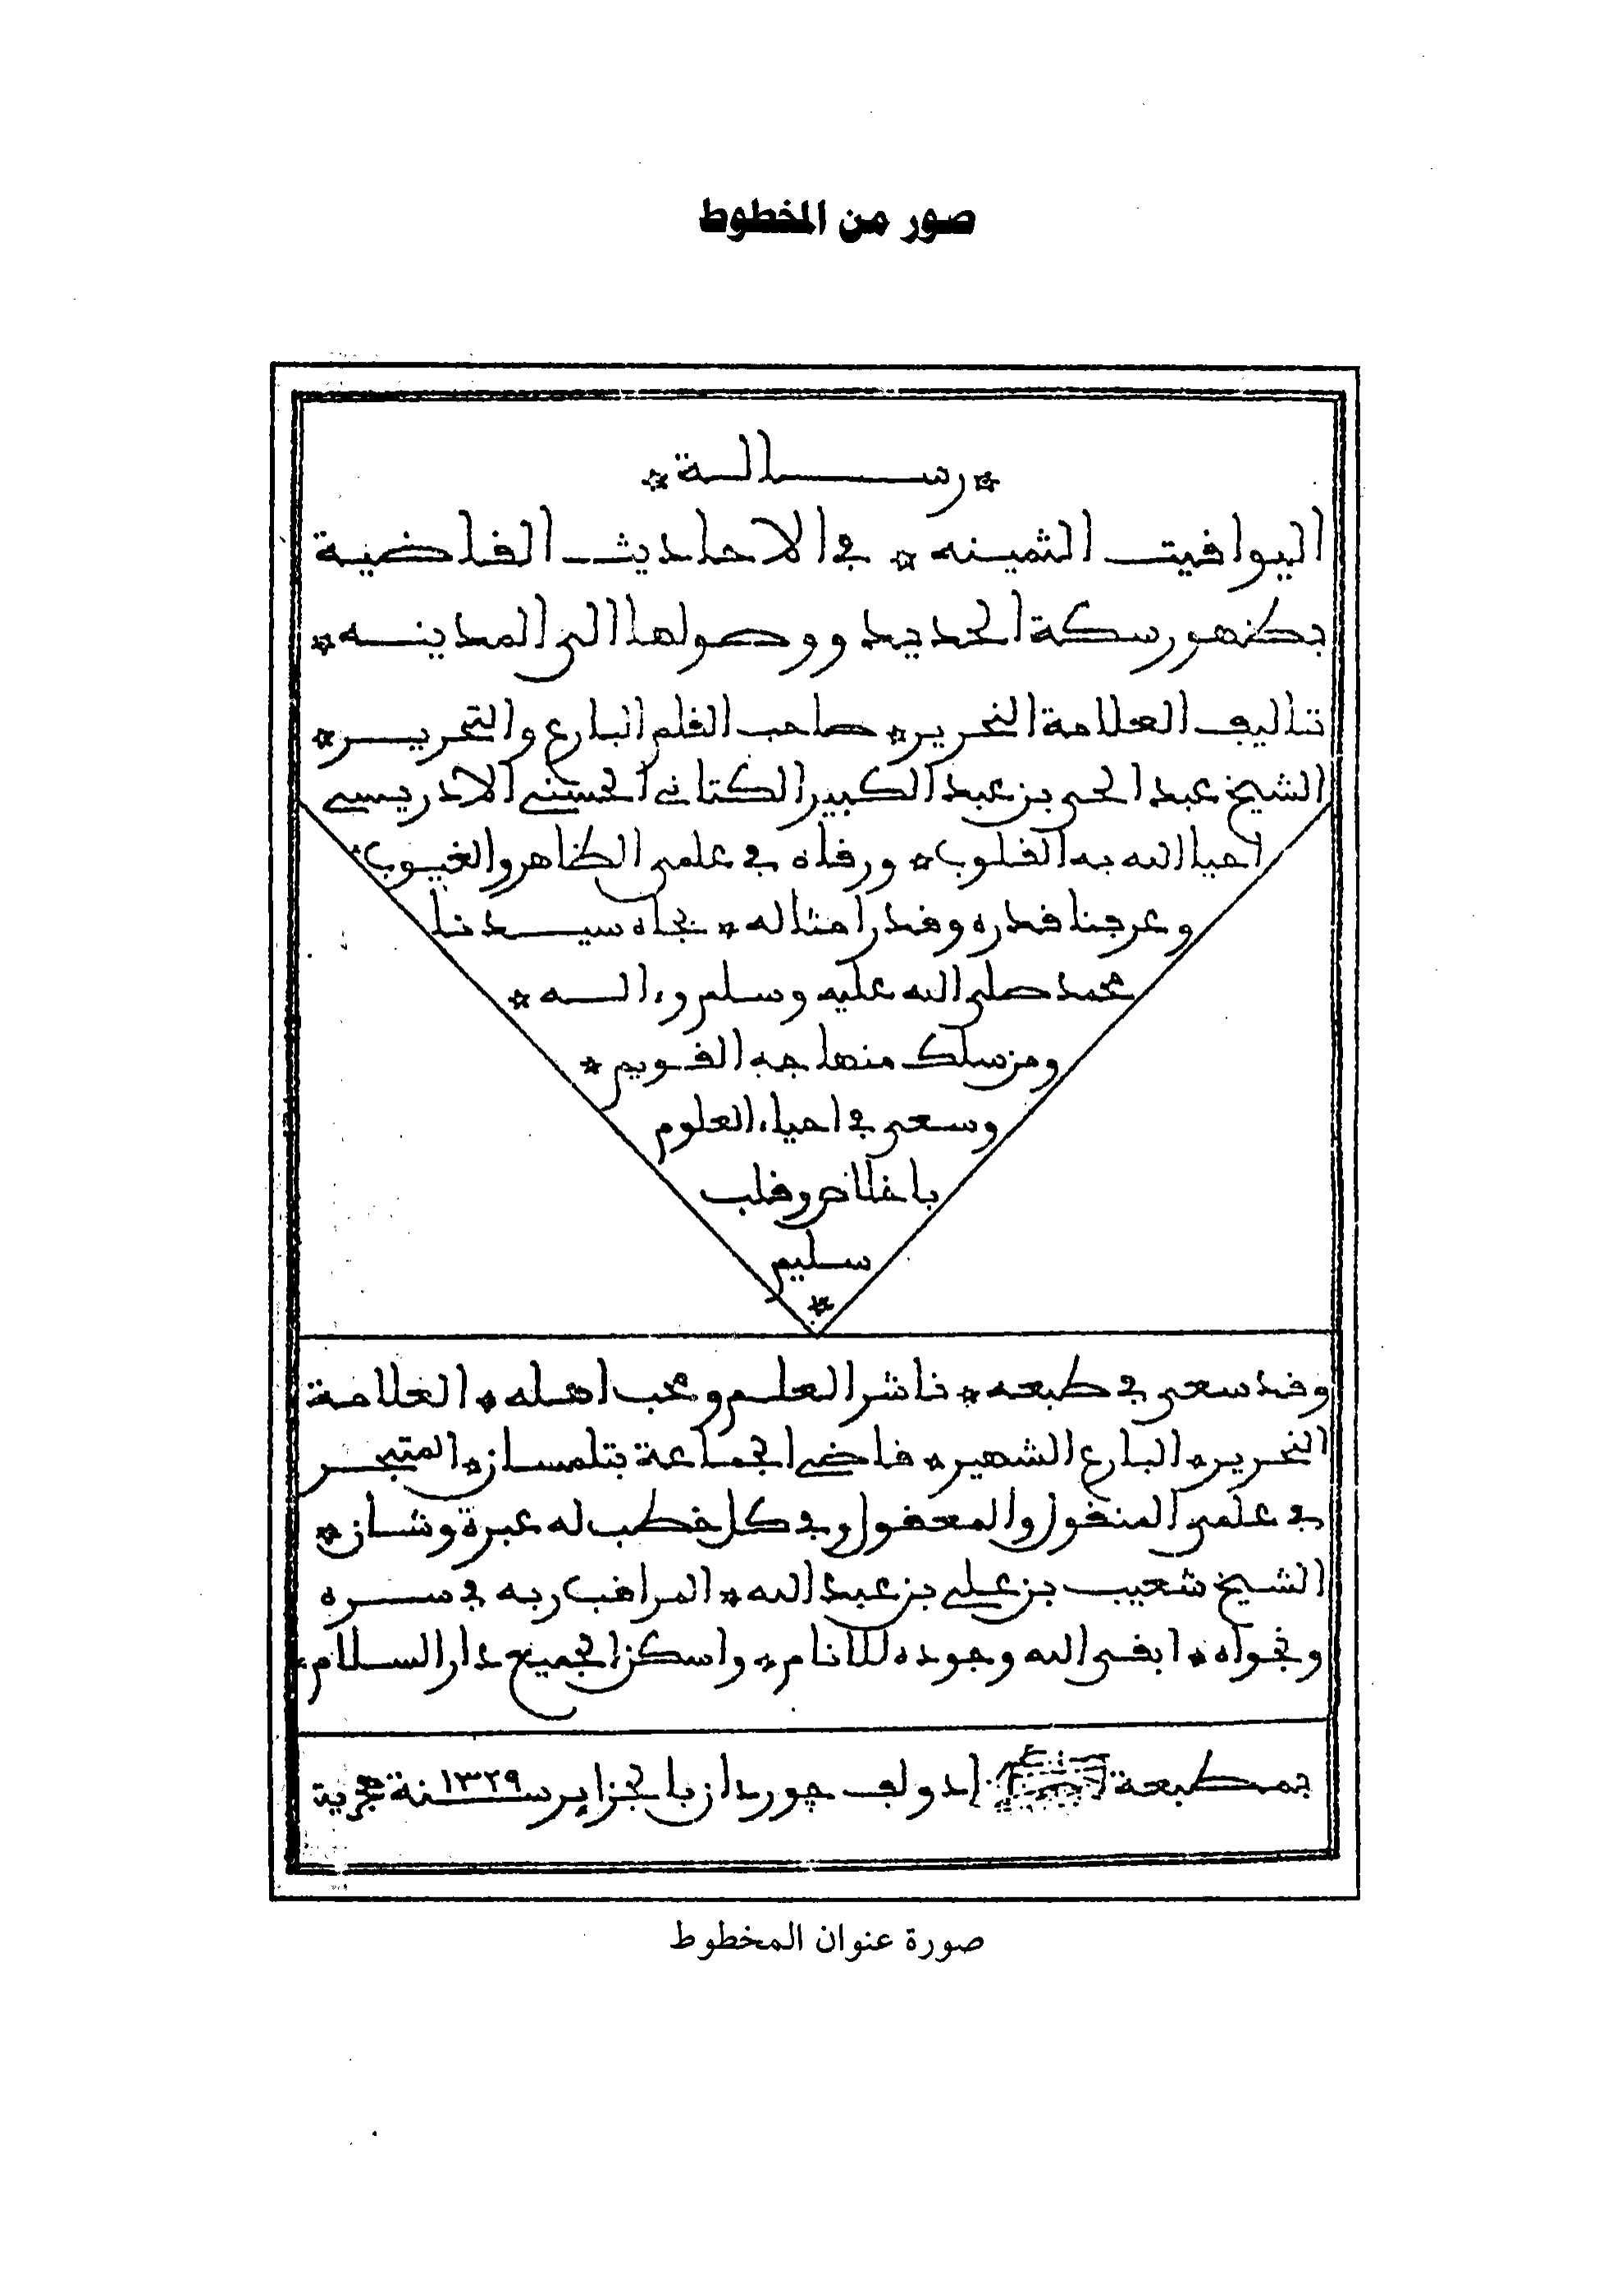 صور من المخطوط
* رسالة *
اليواقيت الثمينه * في الاحاديث القاضية
بظهور سكة الحديد ووصولها الى المدينه *
تاليف العلامة النحرير * صاحب القلم البارع والتحرير *
الشيخ عبد الحي بن عبد الكبير الكتاني الحسني الادريسي
احيا الله به القلوب * ورقاه في علمي الظاهر والغيوب *
وعرجنا قدره وقدر امثاله * بجاه سيدنا
محمد صلى الله عليه وسلم وءاله *
ومن سلك منهاجه القويم *
وسعى في احياء العلوم
باخلاص وقلب
سليم
*
وقد سعى في طبعه * ناشر العلم ومحب اهله * العلامة
النحرير * البارع الشهير * قاضي الجماعة بتلمسان * المتبحر
في علمي المنقول والمعقول وفي كل خطب له عبرة وشان *
الشيخ شعيب بن علي بن عبد الله * المراقب ربه في سره
ونجواه * ابقى الله وجوده للانام * واسكن الجميع دار السلام *
بمطبعة ادولف جوردان بالجزاير سنة ١٣٢٩ هجرية
صورة عنوان المخطوط